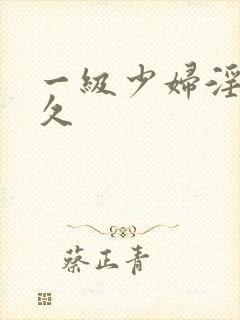 一級少婦淫
久
蔡正青